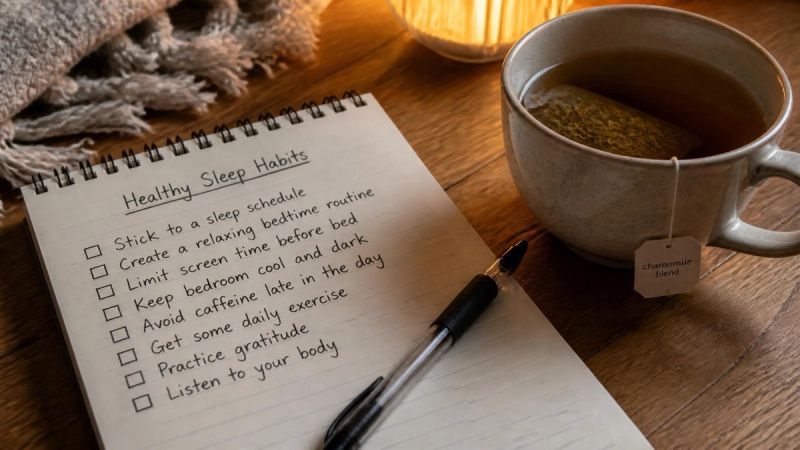 Healthy Sleep Habits
Stick to a sleep schedule
Create a relaxing bedtime routine
Limit screen time before bed
Keep bedroom cool and dark
Avoid caffeine late in the day
Get some daily exercise
Practice gratitude
Listen to your body
chamomile
blend